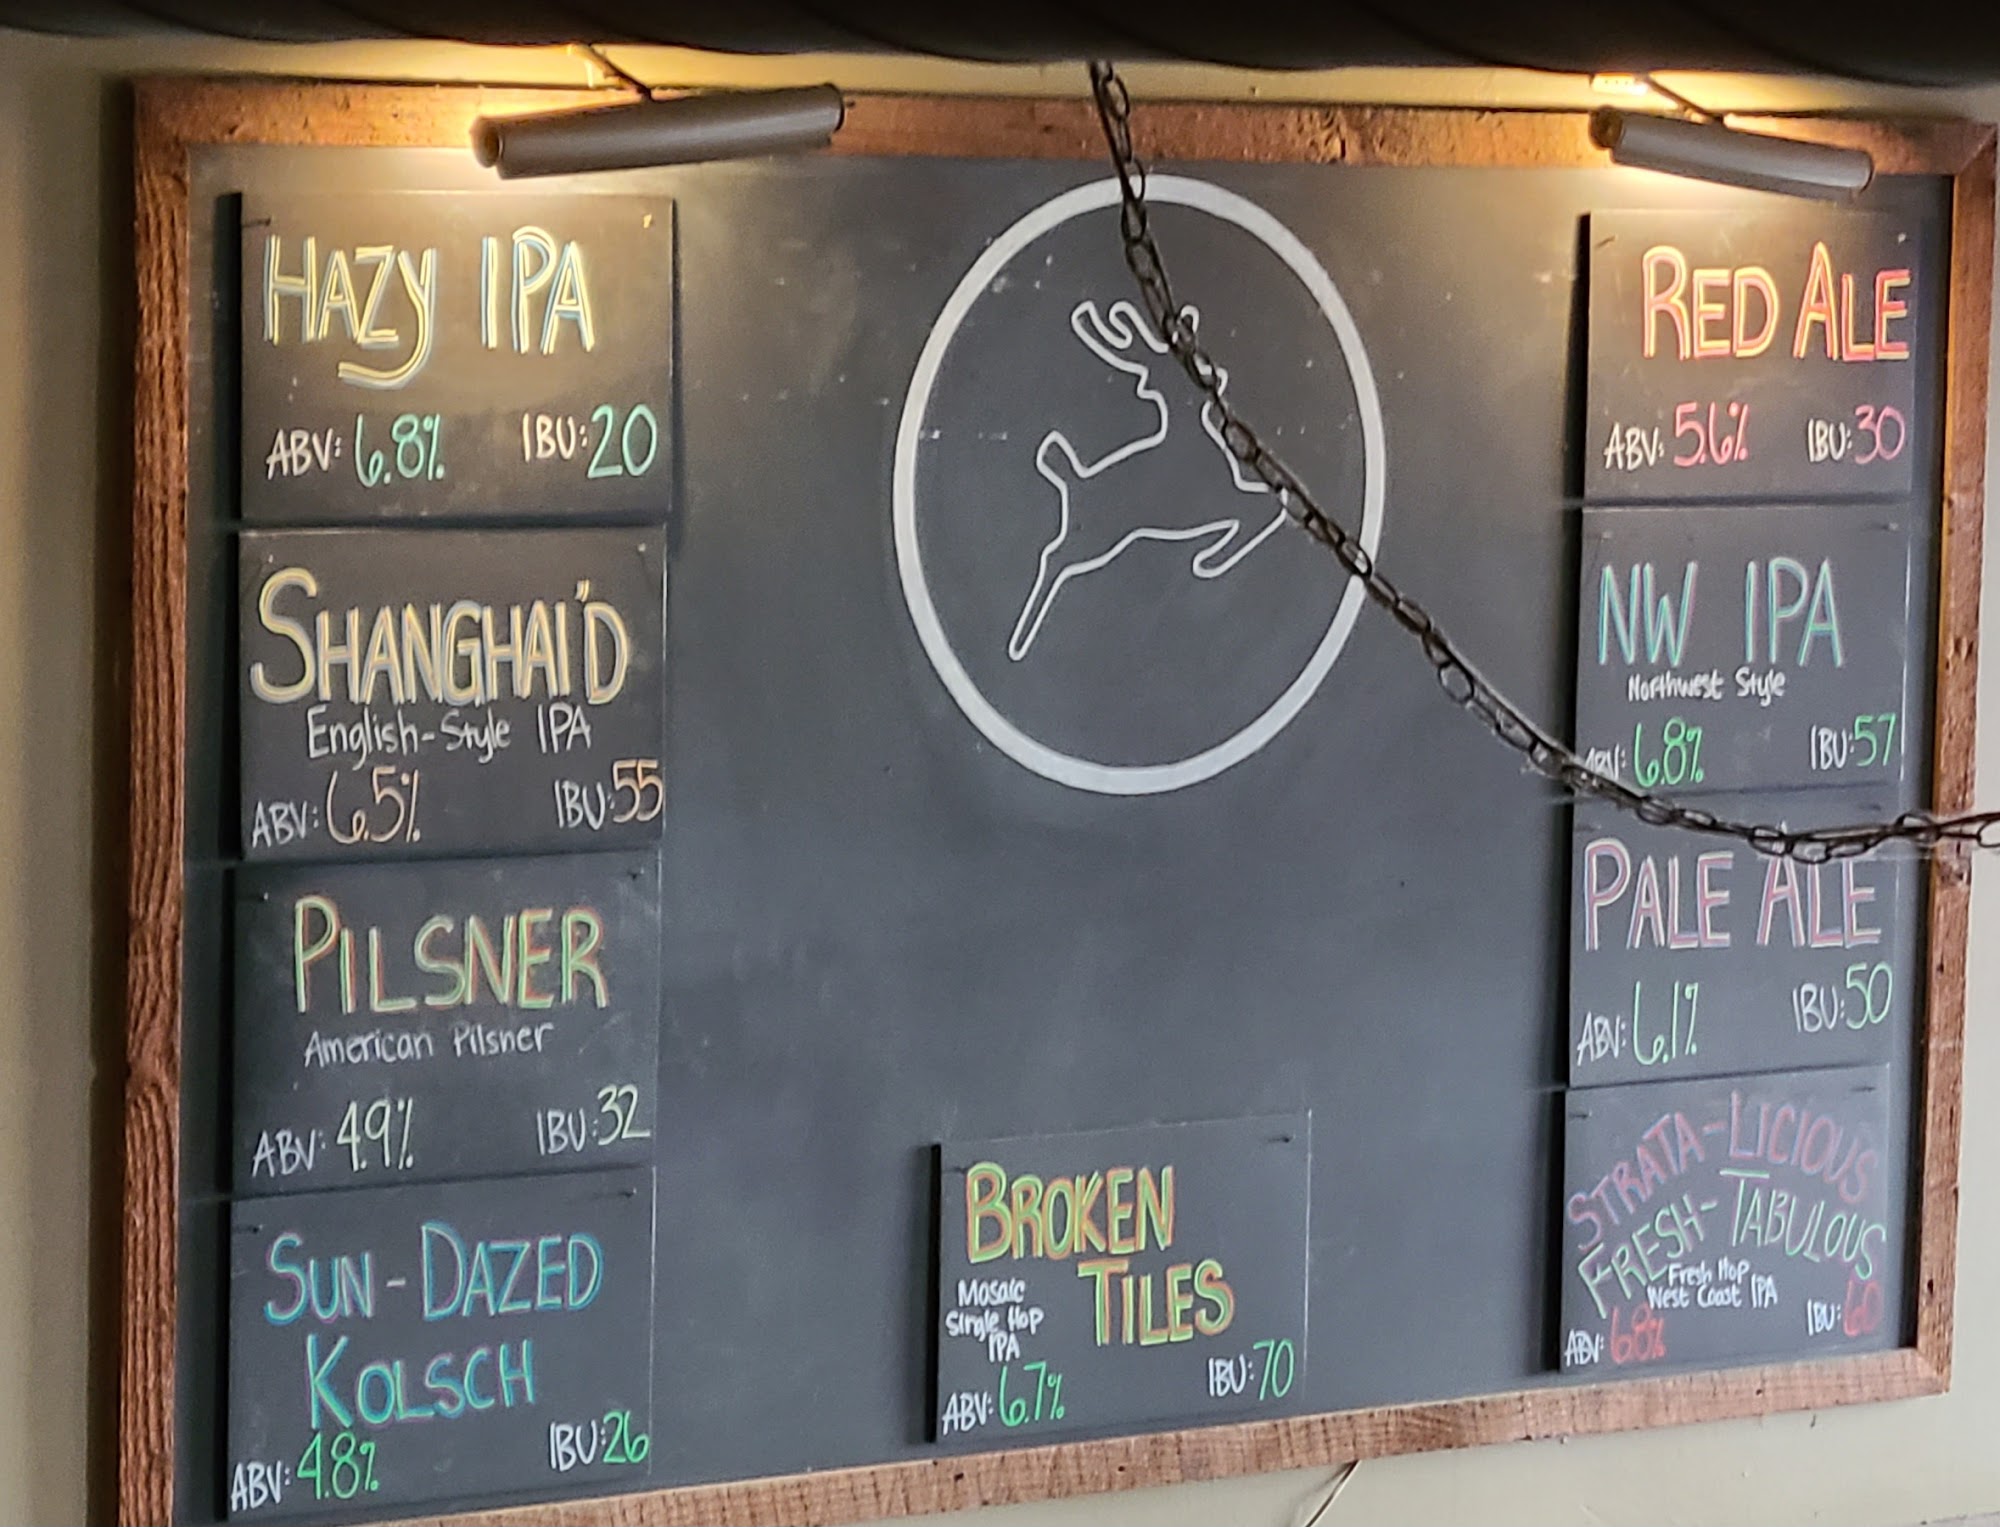 HAZY IPA
ABV: 6.8% IBU: 20
SHANGHAI'D
English-Style IPA
ABV: 6.5% IBU: 55
PILSNER
American Pilsner
ABV: 4.9% IBU: 32
SUN-DAZED
KOLSCH
ABV: 4.8% IBU: 26
BROKEN
TILES
Mosaic
Single Hop
IPA
ABV: 6.7% IBU: 70
RED ALE
ABV: 5.6% IBU: 30
NW IPA
Northwest Style
ABV: 6.8% IBU: 57
PALE ALE
ABV: 6.1% IBU: 50
STRATA-LICIOUS
FRESH-TABULOUS
Fresh Hop
West Coast IPA
ABV: 6.8% IBU: 60